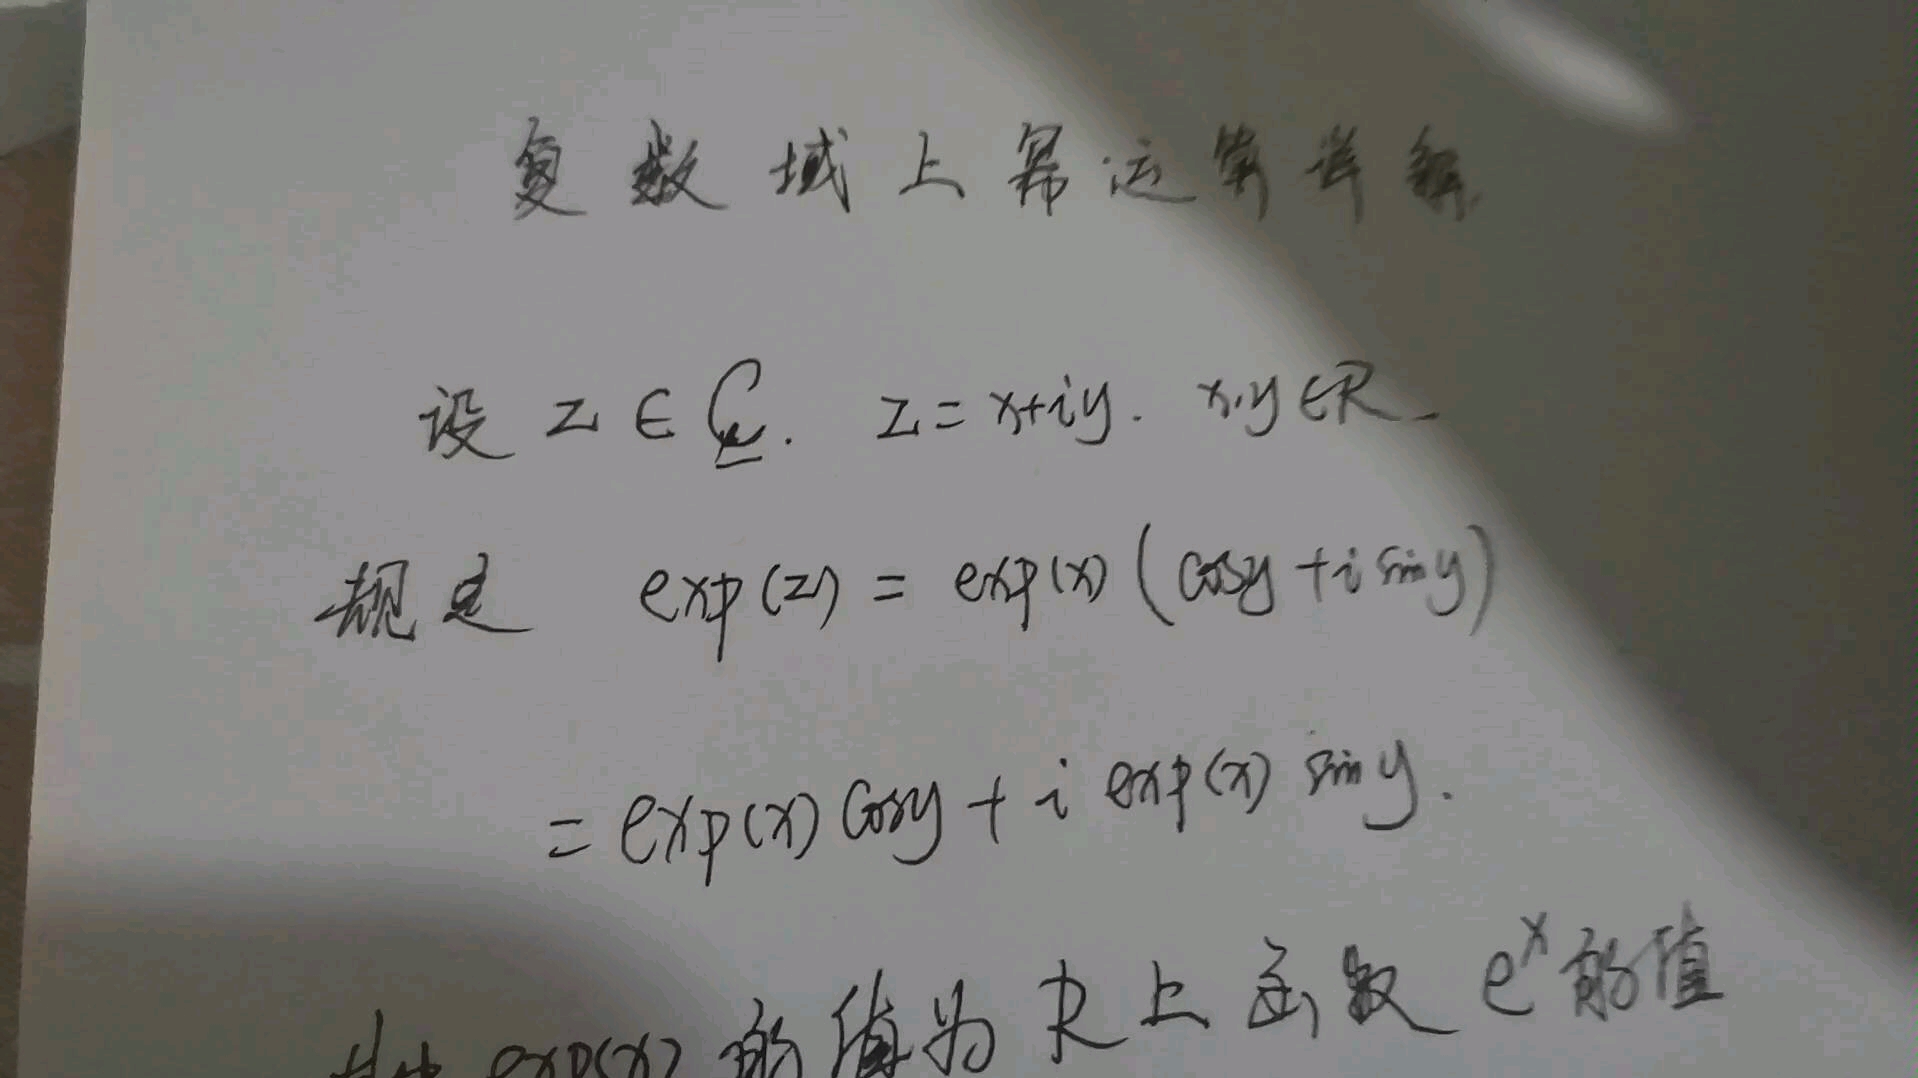 复数域上幂运算详解
设 z ∈ C. z = x+iy. x,y ∈ R.
规定 exp(z) = exp(x) (cosy + i siny)
= exp(x) cosy + i exp(x) siny.
其中 exp(x) 的值为 R 上函数 eˣ 的值